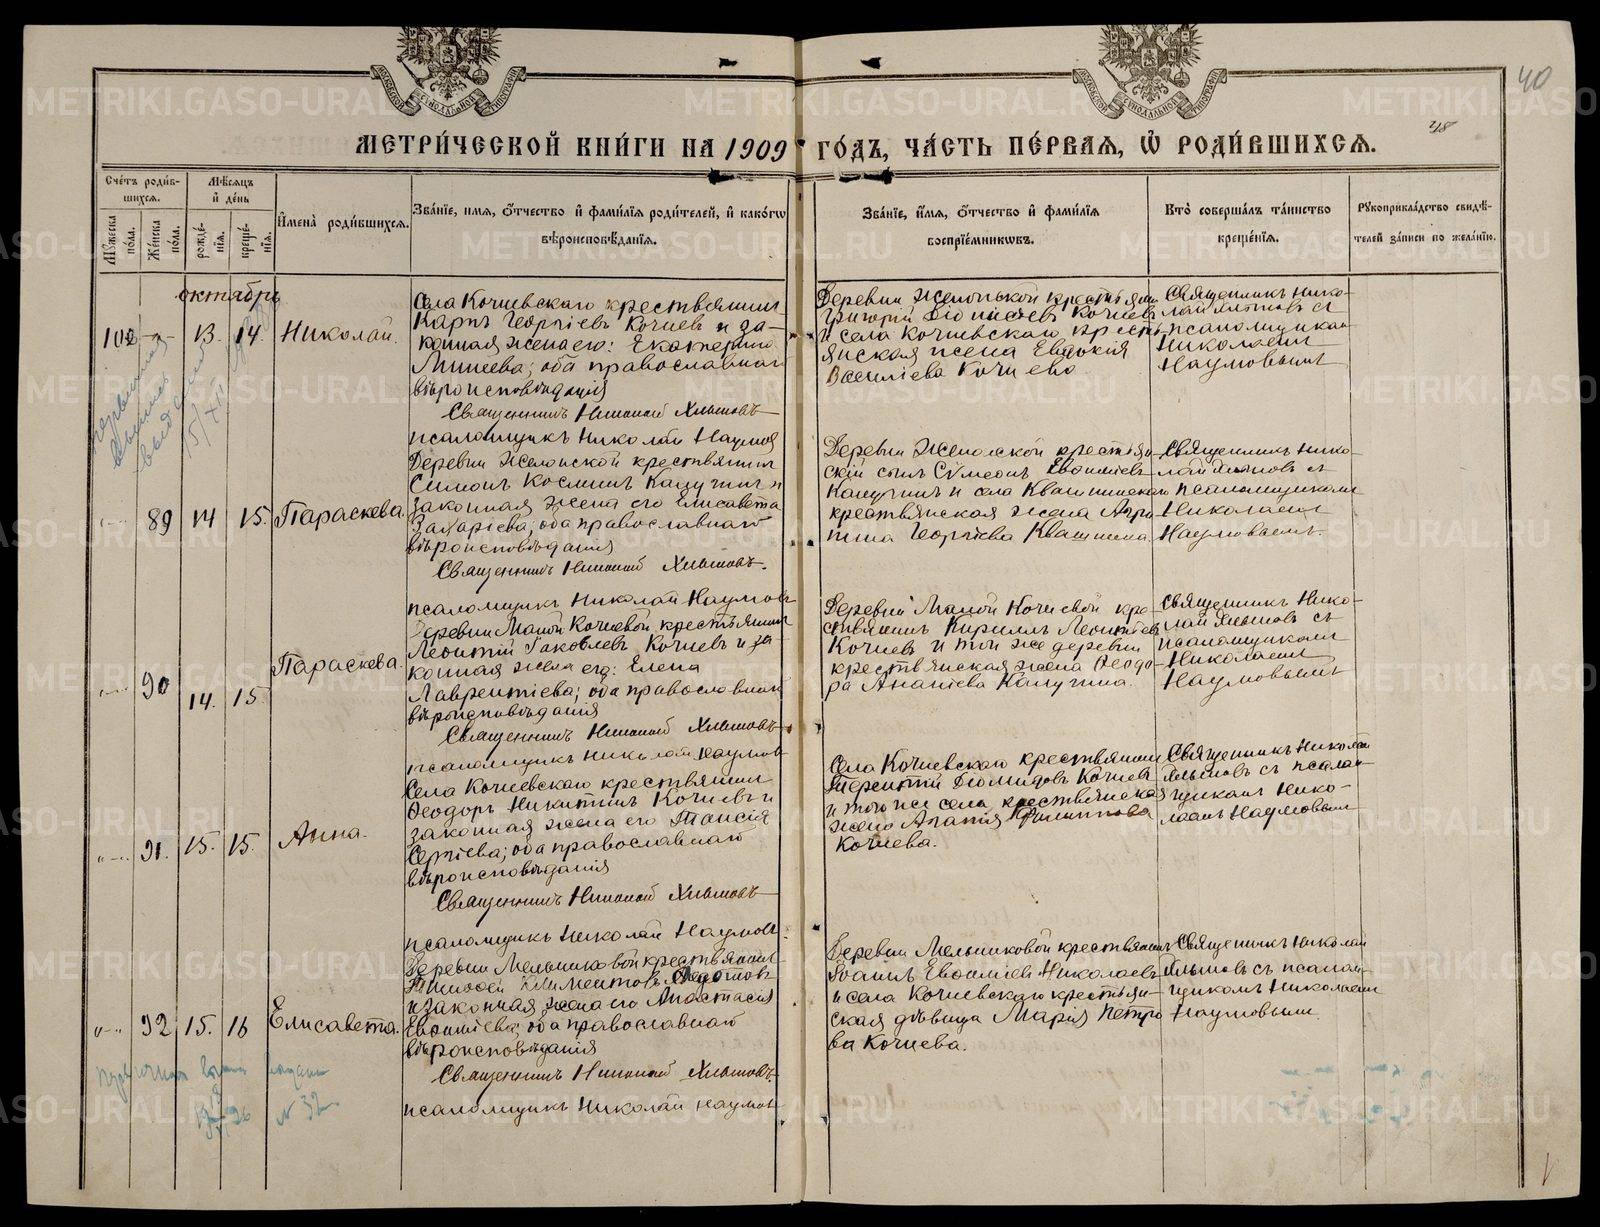 40
48
МЕТРИ́ЧЕСКОЙ КНИ́ГИ НА 1909 ГО́ДЪ, ЧА́СТЬ ПЕ́РВАЯ, Ѡ҆ РОДИ́ВШИХСЯ.
Сче́тъ роди́в-
шихся.
Мꙋжеска по́ла.
Же́нска по́ла.
Мѣ́сяцъ
и҆ де́нь
рожде́-
нїя.
креще́-
нїя.
И҆мена̀ роди́вшихся.
Зва́нїе, и҆мя, ѻ҆́тчество и҆ фами́лїя роди́телей, и҆ како́гѡ
вѣроисповѣ́данїя.
Зва́нїе, и҆́мя, ѻ҆́тчество и҆ фами́лїя
воспрїе́мникѡвъ.
Кто̀ соверша́лъ та́инство
креще́нїя.
Рꙋкоприкла́дство свидѣ́-
телей за́писи по жела́нїю.
октябрь
102 -"- 13. 14. Николай.
Села Кочневскаго крестьянинъ
Карпъ Георгіевъ Кочневъ и за-
конная жена его: Екатерина
Минеева; оба православнаго
вѣроисповѣданія
Священникъ Николай Хлыновъ
псаломщикъ Николай Наумовъ
Григорій Діонисіевъ Кочневъ
и села Кочневскаго кресть-
янская жена Евдокія
Василіева Кочнева
Священникъ Нико-
лай Хлыновъ съ
псаломщикомъ
Николаемъ
Наумовымъ
"-- 89 14 15. Параскева.
крестьянинъ
Симонъ Косминъ Качугинъ и
законная жена его Елисавета
Захаріева; оба православнаго
вѣроисповѣданія
Священникъ Николай Хлыновъ.
псаломщикъ Николай Наумовъ
крестьян-
скій сынъ Сѵмеонъ
и села Квашнинскаго
крестьянская жена Агри-
пина Георгіева Квашнина.
Священникъ Нико-
лай Хлыновъ съ
псаломщикомъ
Николаемъ
Наумовымъ.
"-- 90 14. 15 Параскева.
Деревни Малой Кочневой крестьянинъ
Леонтій Іаковлевъ Кочневъ и за-
конная жена его: Елена
Лаврентіева; оба православнаго
вѣроисповѣданія
Священникъ Николай Хлыновъ
псаломщикъ Николай Наумовъ
Деревни Малой Кочневой кре-
стьянинъ Кириллъ Леонтіевъ
Кочневъ и той же деревни
крестьянская жена Ѳеодо-
ра Ананіева Качугина.
Священникъ Нико-
лай Хлыновъ съ
псаломщикомъ
Николаемъ
Наумовымъ
"-- 91. 15. 15. Анна.
Села Кочневскаго крестьянинъ
Ѳеодоръ Никитинъ Кочневъ и
законная жена его Таисія
Сергіева; оба православнаго
вѣроисповѣданія
Священникъ Николай Хлыновъ
псаломщикъ Николай Наумовъ.
Села Кочневскаго крестьянинъ
Терентій Діомидовъ Кочневъ
и того же села крестьянская
жена Агапія Филиппова
Кочнева.
Священникъ Николай
Хлыновъ съ псалом-
щикомъ Нико-
лаемъ Наумовымъ
"-- 92 15. 16 Елисавета.
Деревни Мельниковой крестьянинъ
Тимоѳей Климентовъ Ѳедотовъ
и законная жена его Анастасія
Евѳиміева; оба православнаго
вѣроисповѣданія
Священникъ Николай Хлыновъ.
псаломщикъ Николай Наумовъ
Деревни Мельниковой крестьянинъ
Іоаннъ Евѳиміевъ Николаевъ
и села Кочневскаго крестьян-
ская дѣвица Марія Петро-
ва Кочнева.
Священникъ Николай
Хлыновъ съ псалом-
щикомъ Николаемъ
Наумовымъ.
N 32
METRIKI.GASO-URAL.RU